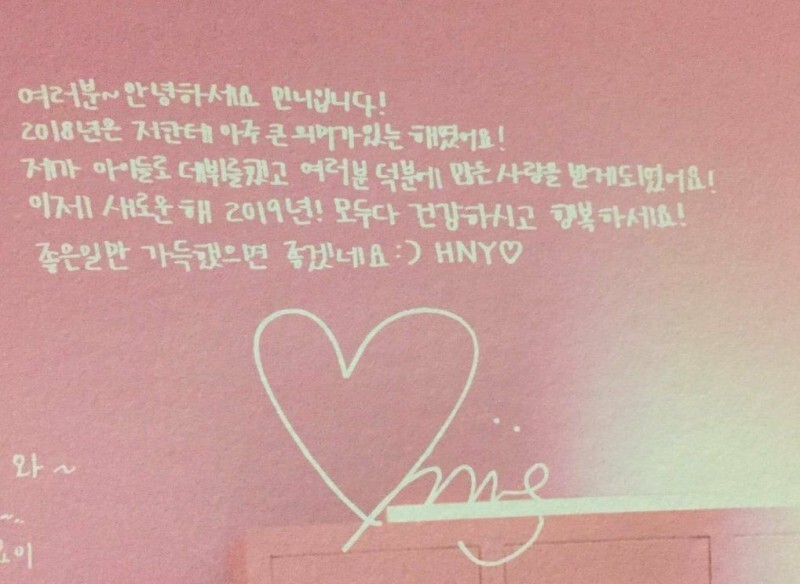 여러분~안녕하세요 민니입니다!
2018년은 저한테 아주 큰 의미가있는 해였어요!
저가 아이들로 데뷔를했고 여러분 덕분에 많은 사랑을 받게되었어요!
이제 새로운해 2019년! 모두다 건강하시고 행복하세요!
좋은일만 가득했으면 좋겠네요:) HNY♡
와~
~..
요이